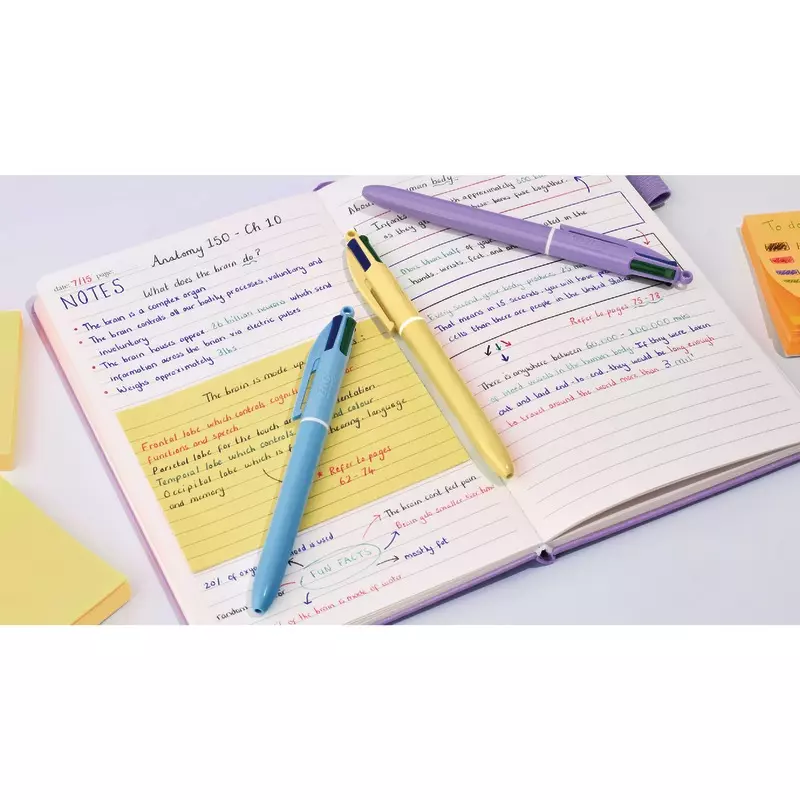 date: 7/15 page:
Anatomy 150 - Ch 10
NOTES
What does the brain do?
The brain is a complex organ
The brain controls all our bodily processes, voluntary and
involuntary
The brain houses approx 26 billion neurons which send
information across the brain via electric pulses
Weighs approximately 3lbs
The brain is made up
Frontal lobe which controls
functions and speech
Parietal lobe for the touch
Temporal lobe which controls hearing, language
Occipital lobe which is colour
and memory
* Refer to pages
62 - 74
FUN FACTS
The brain cant feel pain
Brain gets smaller
mostly fat
of the brain is made of water
random
20% of used
human body
Infants approximately
as they bones fuse together.
More than half of your in the
hands, wrists, feet, and
Every second your body produces 25
That means in 15 seconds, you will have
cells than there are people in the United States
Refer to pages 75 - 78
There is anywhere between 60,000 - 100,000 miles
of blood vessels in the human body. If they were taken
out and laid end-to-end they would be long enough
to travel around the world more than 3
To do